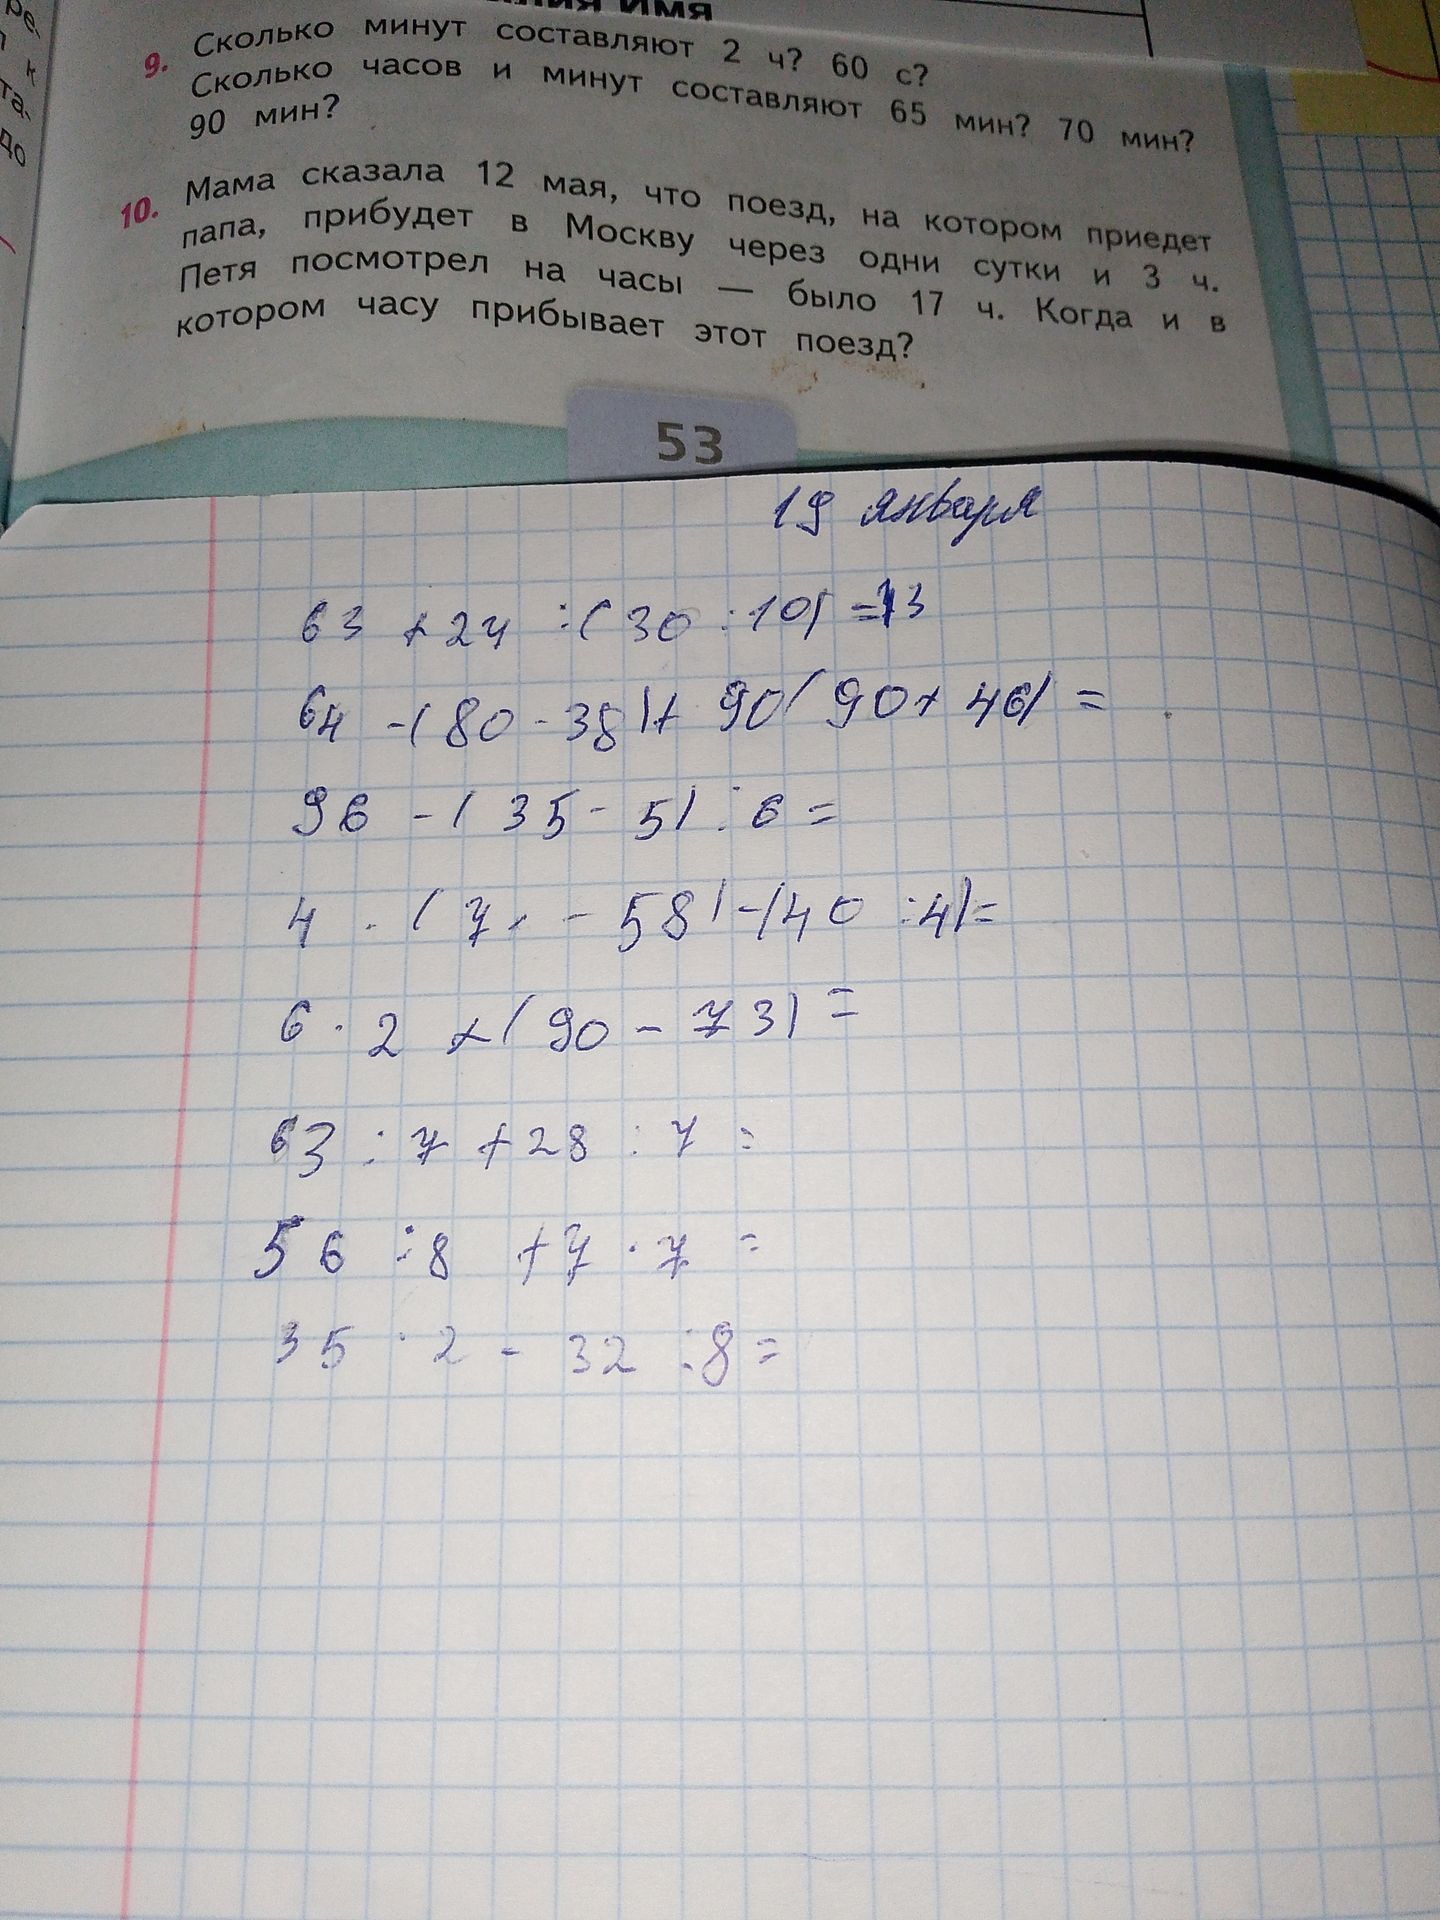 ИМЯ
9. Сколько минут составляют 2 ч? 60 с?
Сколько часов и минут составляют 65 мин? 70 мин?
90 мин?
10. Мама сказала 12 мая, что поезд, на котором приедет
папа, прибудет в Москву через одни сутки и 3 ч.
Петя посмотрел на часы — было 17 ч. Когда и в
котором часу прибывает этот поезд?
53
19 января
63 + 24 : (30 : 10) = 13
64 - (80 - 38) + 90 (90 + 46) =
96 - (35 - 5) : 6 =
4 · (7 - 58) - (40 : 4) =
6 · 2 + (90 - 73) =
63 : 7 + 28 : 7 =
56 : 8 + 7 · 7 =
35 · 2 - 32 : 8 =